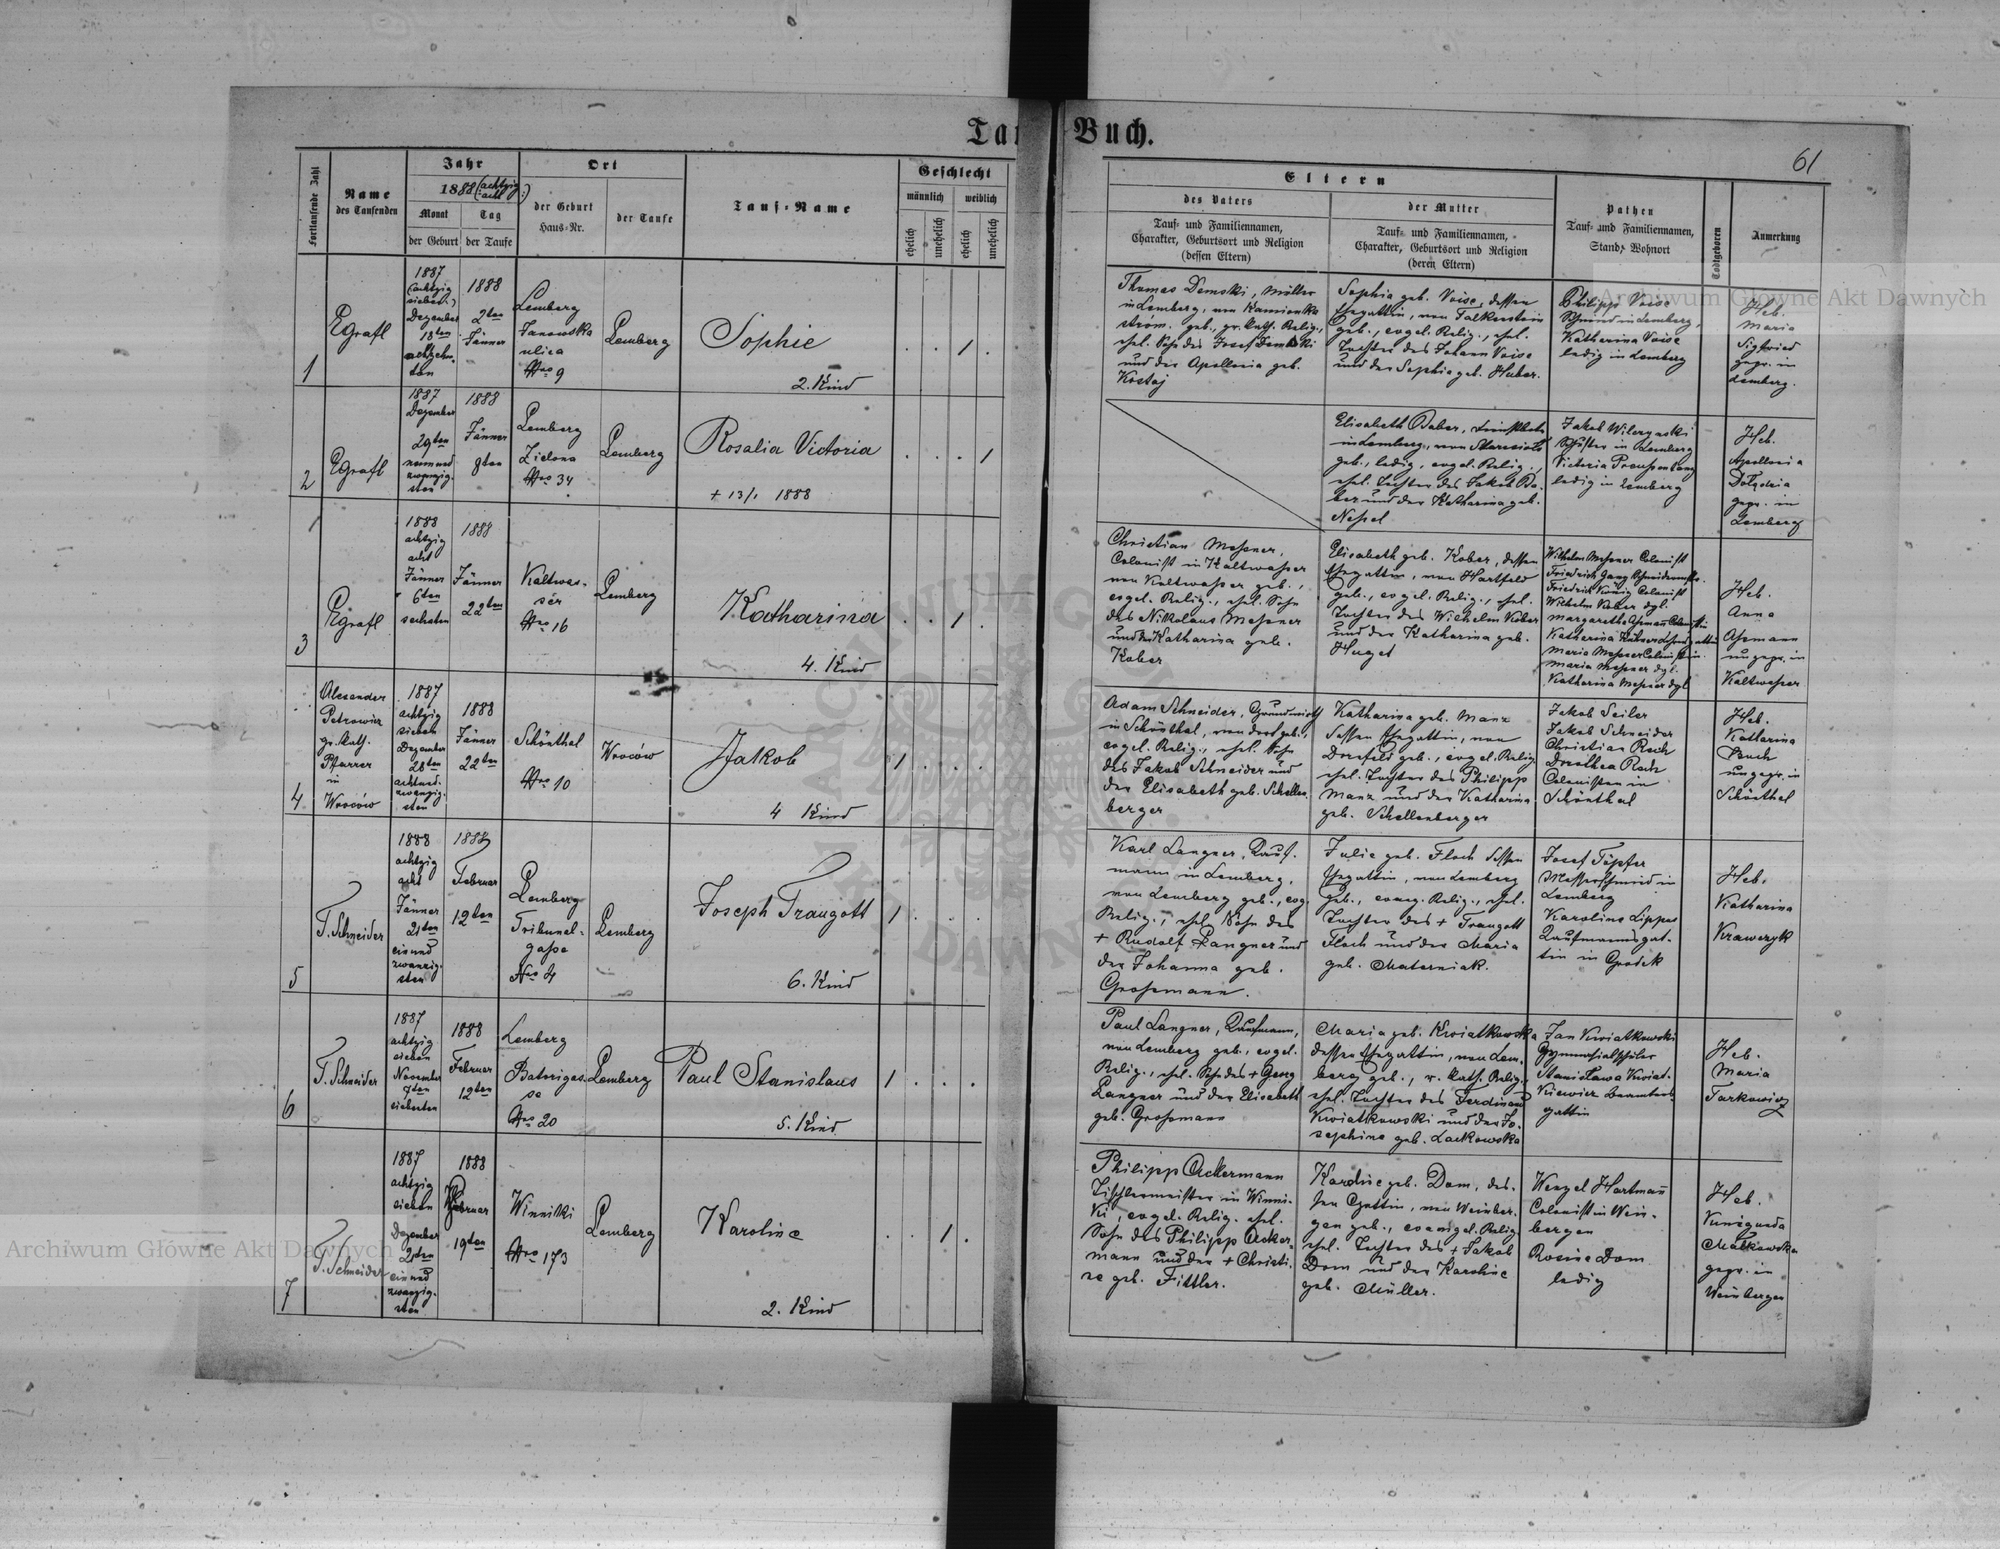 Tauf Buch.
61
Fortlaufende Zahl
Name
des Taufenden
Jahr
1888 (achtzig acht)
Monat
der Geburt
Tag
der Taufe
Ort
der Geburt
Haus-Nr.
der Taufe
Tauf-Name
Geschlecht
männlich
weiblich
ehelich
unehelich
ehelich
unehelich
Eltern
des Vaters
Tauf- und Familiennamen,
Charakter, Geburtsort und Religion
(dessen Eltern)
der Mutter
Tauf- und Familiennamen,
Charakter, Geburtsort und Religion
(deren Eltern)
Pathen
Tauf- und Familiennamen,
Stand, Wohnort
Todtgeboren
Anmerkung
1
Egrafl
1887
(achtzig
sieben)
Dezember
18ten
achtzehn-
ten
1888
2ten
Jänner
Lemberg
Janowska
ulica
Nro 9
Lemberg
Sophie
2. Kind
1
Thomas Demski, Müller
in Lemberg, von Kamionka
strom. geb., gr. kath. Relig.,
ehel. Sohn des Josef Demski
und der Apollonia geb.
Kostaj
Sophia geb. Voise, dessen
Ehegattin, von Falkenstein
geb., evgel. Relig., ehel.
Tochter des Johann Voise
und der Sophia geb. Huber.
Philipp Voise
Schmied in Lemberg,
Katharina Voise
ledig in Lemberg
Heb.
Maria
Sigfried
gepr. in
Lemberg.
2
Egrafl
1887
Dezember
29ten
neunund
zwanzig-
sten
1888
Jänner
8ten
Lemberg
Zielona
Nro 34
Lemberg
Rosalia Victoria
+ 13/1 1888
1
Elisabeth Baber, Dienstbote
in Lemberg, von
geb., ledig, evgel. Relig.,
ehel. Tochter des Jakob Ba-
ber und der Katharina geb.
Nessel
Jakob Wilczynski
Schuster in Lemberg
Victoria
ledig in Lemberg
Heb.
Apollonia
gepr. in
Lemberg
3
Egrafl
1888
achtzig
acht
Jänner
6ten
sechsten
1888
Jänner
22ten
Kaltwas-
ser
Nro 16
Lemberg
Katharina
4. Kind
1
Christian Messner,
Colonist in Kaltwasser
von Kaltwasser geb.,
evgel. Relig., ehel. Sohn
des Nikolaus Messner
und der Katharina geb.
Kober
Elisabeth geb. Kober, dessen
Ehegattin, von Hartfeld
geb., evgel. Relig., ehel.
Tochter des Wilhelm Kober
und der Katharina geb.
Huget
Wilhelm Messner Colonist
Friedrich Gang
Friedrich König Colonist
Wilhelm Kober dgl.
Margaretha
Katharina
Maria Messner Colonistin
Maria Messner dgl.
Katharina Messner dgl.
Heb.
Anna
Assmann
ungepr. in
Kaltwasser
4
Alexander
Petrowicz
gr. kath.
Pfarrer
in
Wroców
1887
achtzig
sieben
Dezember
28ten
achtund-
zwanzig-
sten
1888
Jänner
22ten
Schönthal
Nro 10
Wroców
Jakob
4 Kind
1
Adam Schneider, Grundwirth
in Schönthal, von dort geb.,
evgel. Relig., ehel. Sohn
des Jakob Schneider und
der Elisabeth geb. Schellen
berger
Katharina geb. Manz
dessen Ehegattin, von
Dornfeld geb., evgel. Relig.
ehel. Tochter des Philipp
Manz und der Katharina
geb. Schellenberger
Jakob Seiler
Jakob Schneider
Christian Roch
Dorothea Roch
Colonisten in
Schönthal
Heb.
Katharina
Bruch
ungepr. in
Schönthal
5
T. Schneider
1888
achtzig
acht
Jänner
21ten
einund
zwanzig-
sten
1888
Februar
12ten
Lemberg
Tribunal-
gasse
Nro 4
Lemberg
Joseph Traugott
6. Kind
1
Karl Langner, Kauf-
mann in Lemberg,
von Lemberg geb., evg.
Relig., ehel. Sohn des
+ Rudolf Langner und
der Johanna geb.
Grossmann.
Julie geb. Floch dessen
Ehegattin, von Lemberg
geb., evang. Relig., ehel.
Tochter des + Traugott
Floch und der Maria
geb. Materniak.
Josef Töpfer
Messerschmied in
Lemberg
Karoline Lippus
Kaufmannsgat-
tin in Grodek
Heb.
Katharina
Krawczyk
6
T. Schneider
1887
achtzig
sieben
November
7ten
siebenten
1888
Februar
12ten
Lemberg
Batorigas-
se
Nro 20
Lemberg
Paul Stanislaus
5. Kind
1
Paul Langner, Kaufmann,
von Lemberg geb., evgel.
Relig., ehel. Sohn des + Georg
Langner und der Elisabeth
geb. Grossmann
Maria geb. Kwiatkowska
dessen Ehegattin, von Lem-
berg geb., r. kath. Relig.,
ehel. Tochter des Ferdinand
Kwiatkowski und der Jo-
sephine geb. Laskowska
Jan Kwiatkowski
Gymnasialschüler
Stanisława Kwiat-
kiewicz Beamtens
gattin
Heb.
Maria
Tarkowicz
7
T. Schneider
1887
achtzig
sieben
Dezember
21ten
einund
zwanzig-
sten
1888
Februar
19ten
Winniki
Nro 173
Lemberg
Karoline
2. Kind
1
Philipp Ackermann
Tischlermeister in Winni-
ki, evgel. Relig. ehel.
Sohn des Philipp Acker-
mann und der + Christi-
ne geb. Fittler.
Karoline geb. Dom, des-
sen Gattin, von Weinber-
gen geb., evangel. Relig.
ehel. Tochter des + Jakob
Dom und der Karoline
geb. Müller.
Wenzel Hartmann
Colonist in Wein-
bergen
Rosina Dom
ledig
Heb.
Kunegunda
Małkowska
gepr. in
Weinbergen
Archiwum Główne Akt Dawnych
Archiwum Główne Akt Dawnych